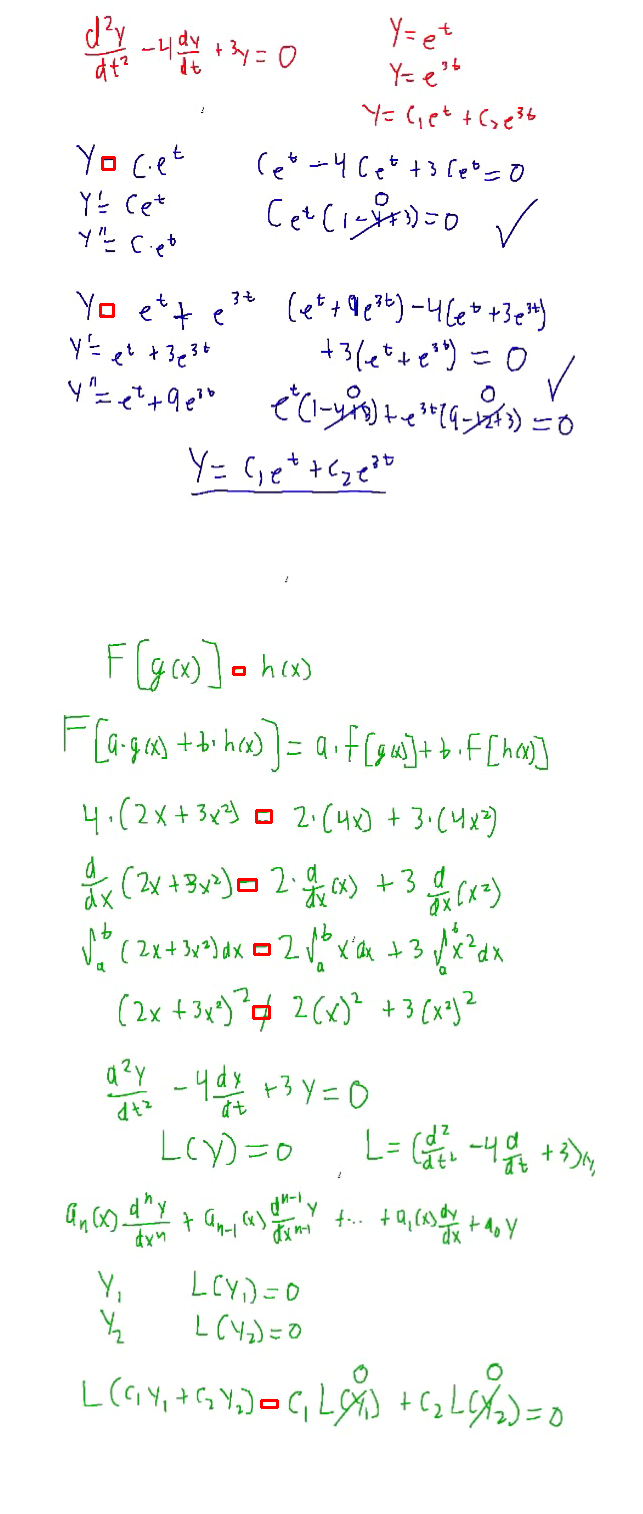 d²y/dt² - 4 dy/dt + 3y = 0
y = e^t
y = e^3t
y = c₁e^t + c₂e^3t
y = c·e^t
y' = ce^t
y'' = c·e^t
ce^t - 4ce^t + 3ce^t = 0
ce^t(1-4+3) = 0 ✓
0
y = e^t + e^3t
y' = e^t + 3e^3t
y'' = e^t + 9e^3t
(e^t + 9e^3t) - 4(e^t + 3e^3t)
+3(e^t + e^3t) = 0 ✓
0 0
e^t(1-4+3) + e^3t(9-12+3) = 0
y = c₁e^t + c₂e^3t
F[g(x)] = h(x)
F[a·g(x) + b·h(x)] = a·F[g(x)] + b·F[h(x)]
4·(2x + 3x²) = 2·(4x) + 3·(4x²)
d/dx (2x + 3x²) = 2·d/dx(x) + 3 d/dx(x²)
∫_a^b (2x + 3x²)dx = 2∫_a^b x dx + 3∫_a^b x² dx
(2x + 3x²)² ≠ 2(x)² + 3(x²)²
d²y/dt² - 4 dy/dt + 3y = 0
L(y) = 0 L = (d²/dt² - 4 d/dt + 3)y
aₙ(x) dⁿy/dxⁿ + aₙ₋₁(x) dⁿ⁻¹y/dxⁿ⁻¹ + ... + a₁(x) dy/dx + a₀y
y₁ L(y₁) = 0
y₂ L(y₂) = 0
0 0
L(c₁y₁ + c₂y₂) = c₁L(y₁) + c₂L(y₂) = 0